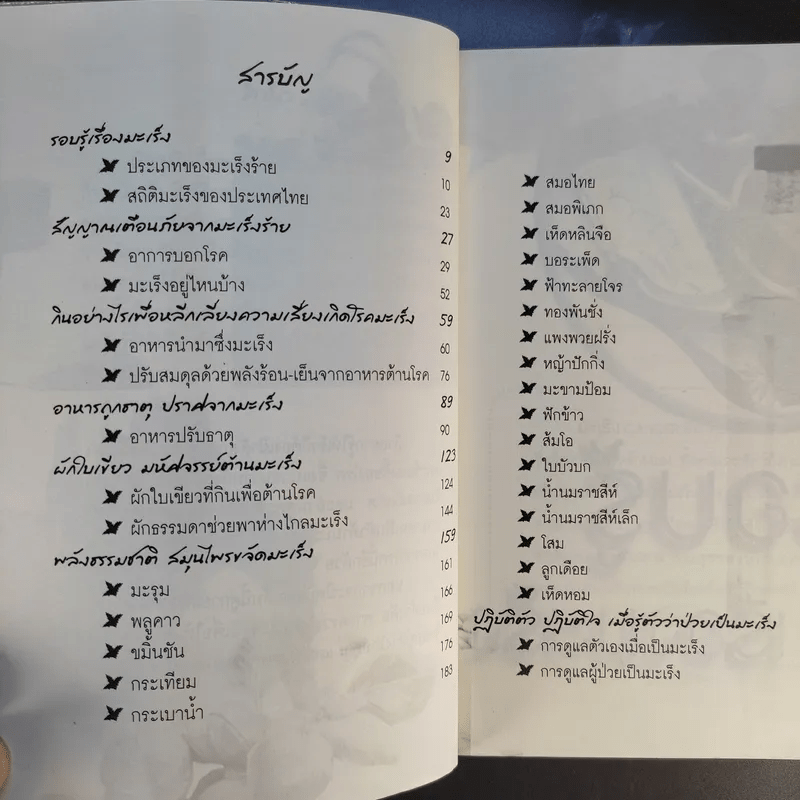 สารบัญ
รอบรู้เรื่องมะเร็ง 9
ประเภทของมะเร็งร้าย 10
สถิติมะเร็งของประเทศไทย 23
สัญญาณเตือนภัยจากมะเร็งร้าย 27
อาการบอกโรค 29
มะเร็งอยู่ไหนบ้าง 52
กินอย่างไรเพื่อหลีกเลี่ยงความเสี่ยงเกิดโรคมะเร็ง 59
อาหารนำมาซึ่งมะเร็ง 60
ปรับสมดุลด้วยพลังร้อน-เย็นจากอาหารต้านโรค 76
อาหารถูกธาตุ ปราศจากมะเร็ง 89
อาหารปรับธาตุ 90
ผักใบเขียว มหัศจรรย์ต้านมะเร็ง 123
ผักใบเขียวที่กินเพื่อต้านโรค 124
ผักธรรมดาช่วยพาห่างไกลมะเร็ง 144
พลังธรรมชาติ สมุนไพรขจัดมะเร็ง 159
มะรุม 161
พลูคาว 166
ขมิ้นชัน 169
กระเทียม 176
กระเบาน้ำ 183
สมอไทย
สมอพิเภก
เห็ดหลินจือ
บอระเพ็ด
ฟ้าทะลายโจร
ทองพันชั่ง
แพงพวยฝรั่ง
หญ้าปักกิ่ง
มะขามป้อม
ฟักข้าว
ส้มโอ
ใบบัวบก
น้ำนมราชสีห์
น้ำนมราชสีห์เล็ก
โสม
ลูกเดือย
เห็ดหอม
ปฏิบัติตัว ปฏิบัติใจ เมื่อรู้ตัวว่าป่วยเป็นมะเร็ง
การดูแลตัวเองเมื่อเป็นมะเร็ง
การดูแลผู้ป่วยเป็นมะเร็ง